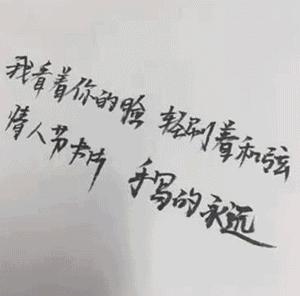 我看着你的脸 轻刷着和弦
情人节卡片 手写的永远